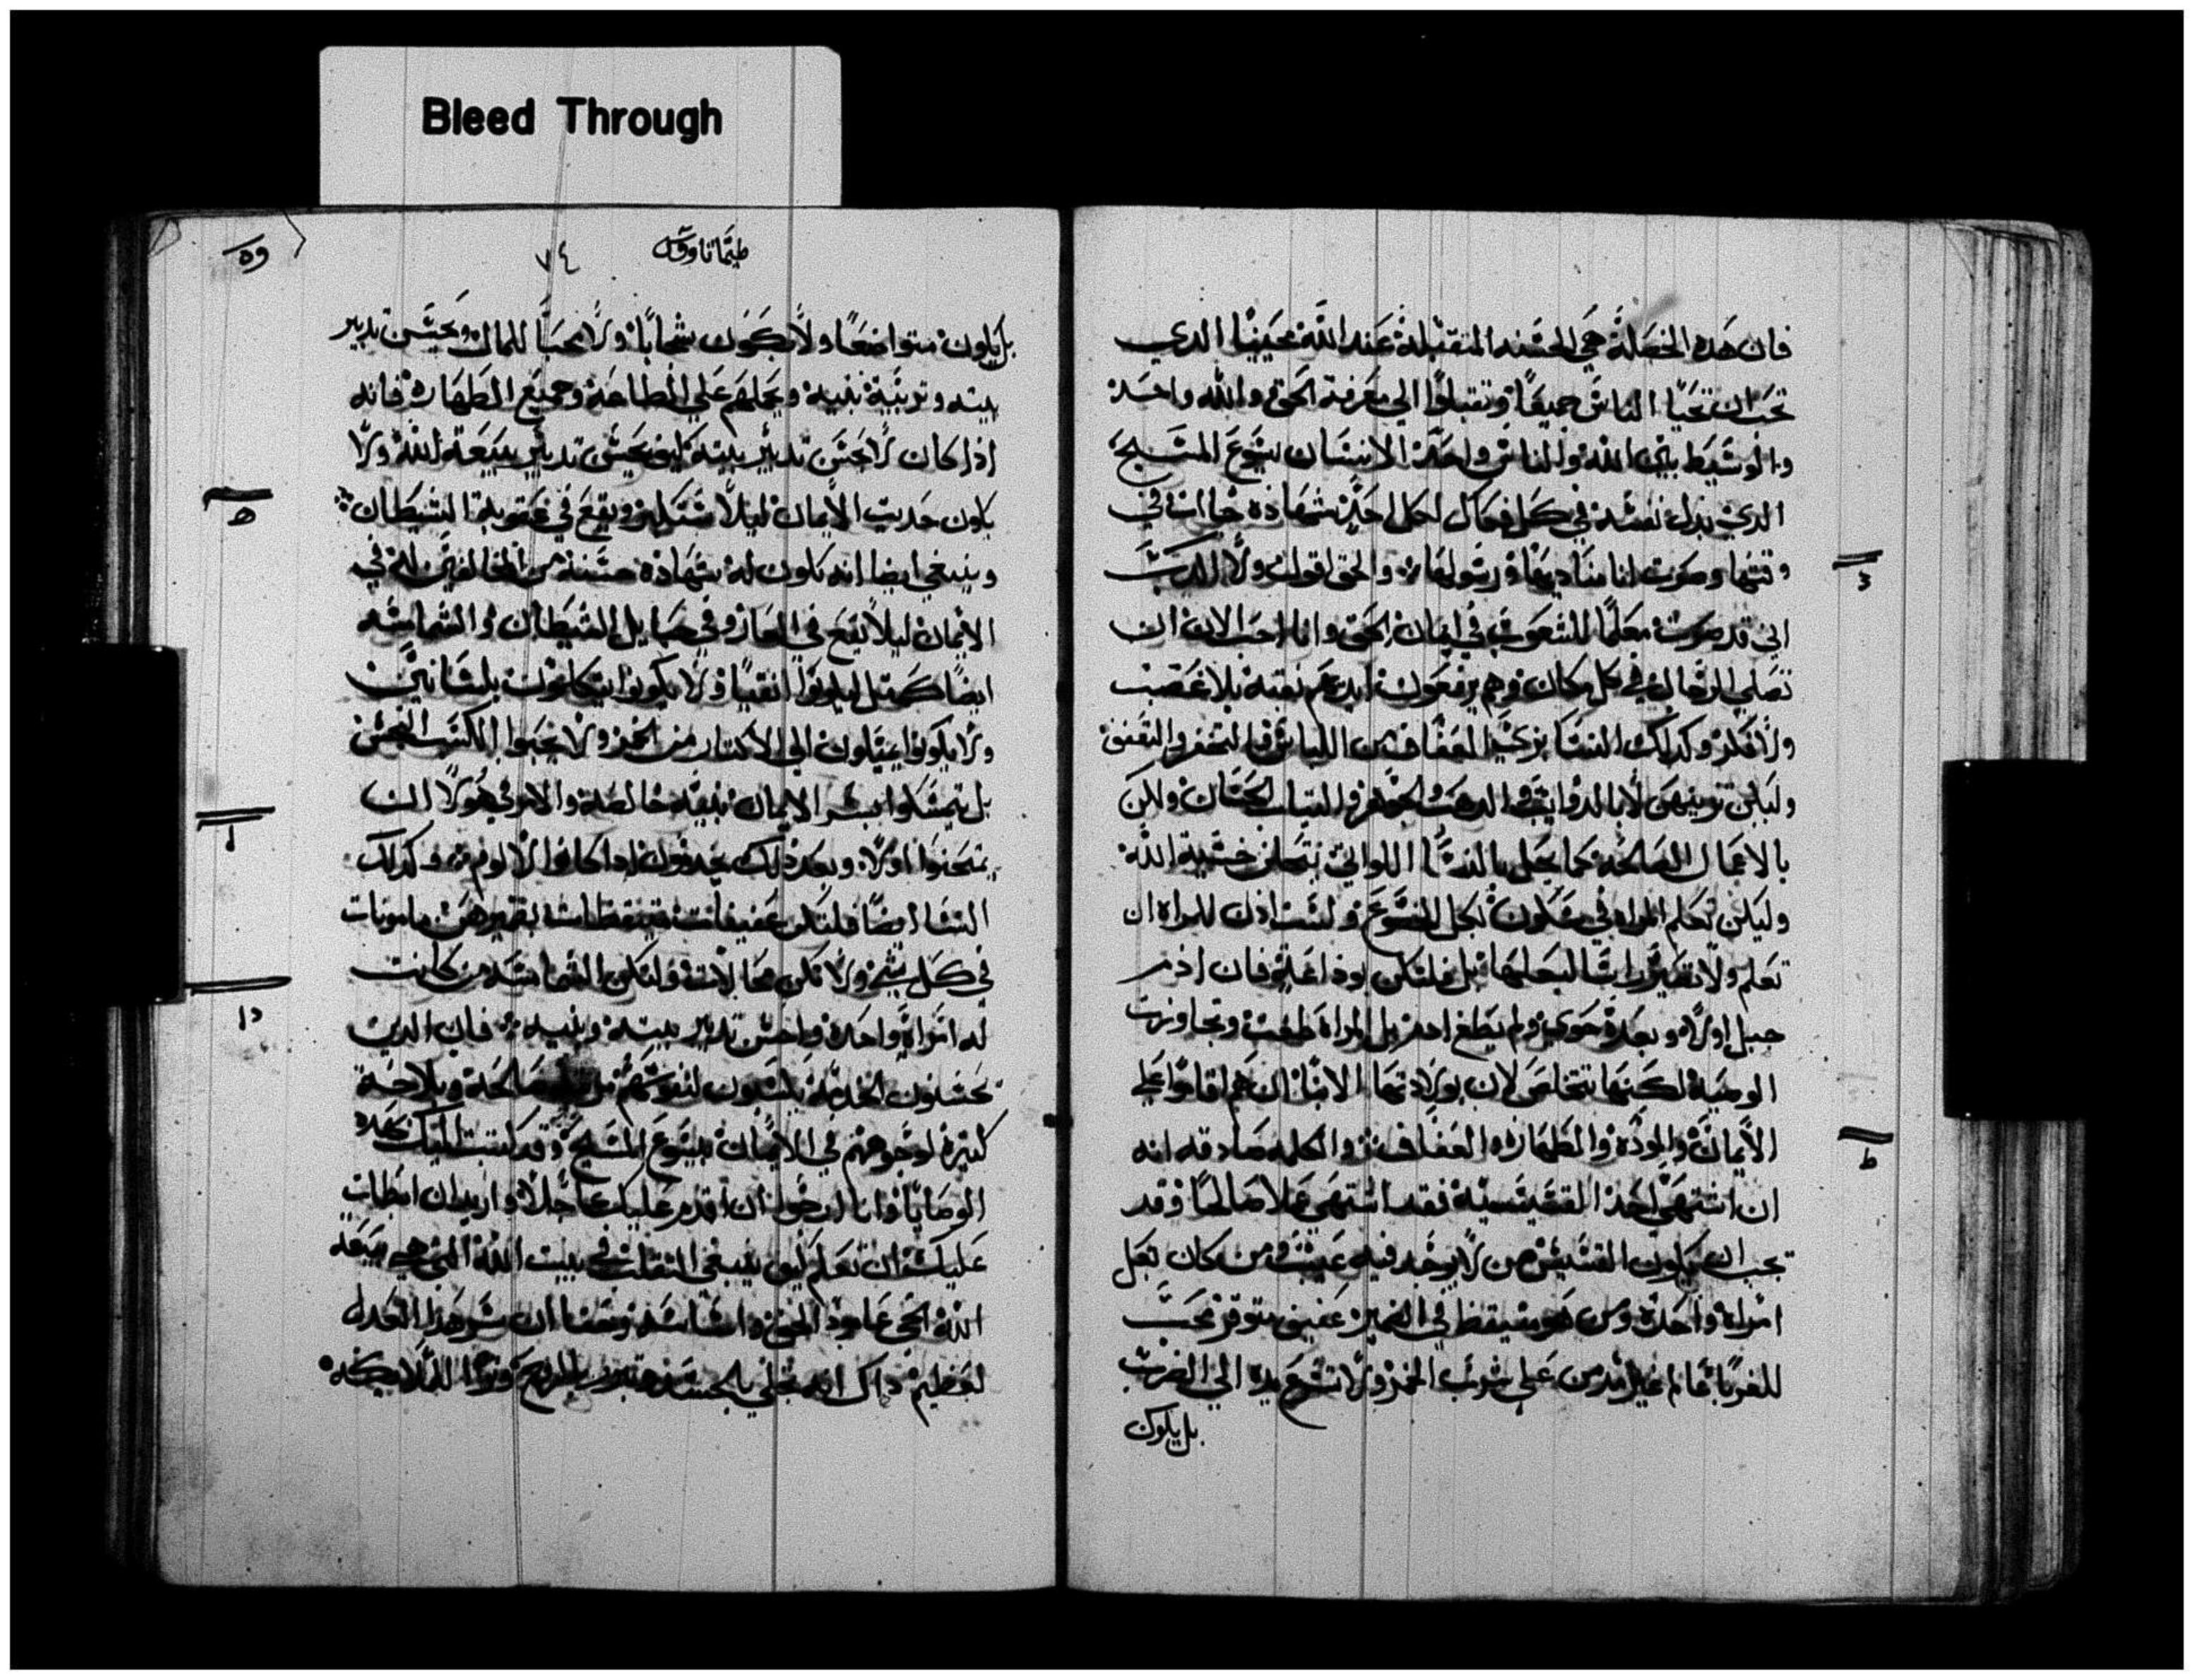 Bleed Through
فان هده الخصلة هي الحسنه المتقبلة عند الله محيينا الدي
يحب ان يحيا الناس جميعا وتقبلوا الي معرفة الحق والله واحد
والوسيط بين الله والناس واحد الانسان يسوع المسيح
الدي بدل نفسه في كل احد شهادة جاات في
وقتها وصرت انا مناديها ورسولها والحق اقول ولا اكدب
اني قد صرت معلما للشعوب في ايمان الحق وانا احب الان ان
تصلي الرجال في كل مكان وهم يرفعون ايديهم نقية بلا غضب
ولا فكر وكدلك النسا بزي العفاف من اللباس
وليكن تزينهن لا بالدوايب والدهب والجوهر والتياب الحسان ولكن
بالاعمال الصالحة كما يجمل بالنسا اللواتي خشية الله
وليكن تعلم المراه في سكون بكل الخضوع ولست ادن للمراه ان
تعلم ولا راسا لبعلها بل فلتكن فان ادم
جبل اولا وبعده حوي ولم يطغ ادم بل المراة طغت وتجاوزت
الوصية لكنها تتخلص لان بولادتها الابنا ان هم اقاموا علي
الايمان والمودة والطهارة والعفاف والكلمه صادقه انه
ان اشتهي احد القسيسية فقد اشتهي عملا صالحا وقد
يجب ان يكون القسيس من لا يوجد فيه عيب ومن كان بعل
امراة واحدة ومن هو متيقظ في الضمير عفيف متوقر محب
للغربا عالم غير مدمن علي شرب الخمر ولا تسرع يده الي الضرب
بل يكون
طيماتاوس
٧٤
بل يكون متواضعا ولا يكون شحابا ولا محبا للمال ويحسن تدبير
بيته وتربية بنيه ويحملهم علي الطاعة وجميع الطهارة فانه
اذا كان لا يحسن تدبير بيته كيف يحسن تدبير بيعة الله ولا
يكون حديت الايمان ليلا ويقع في عقوبة الشيطان
وينبغي ايضا انه يكون له شهادة حسنة من المخالفين له في
الايمان ليلا يقع في العار وفي حبايل الشيطان والشمامسه
ايضا كمتل ليكونوا انقيا ولا يكونوا يتكلمون بلسانين
ولا يكونوا يميلون الي الاكتار من الخمر ولا يحبوا الكسب النجس
بل يتمسكوا بسر الايمان بنية خالصة والامر في هولا ان
يمتحنوا اولا وبعد دلك يخدمون ادا كانوا لا لوم وكدلك
النسا ايضا فلتكن عفيفات متيقظات بضميرهن مامونات
في كل شي ولا تكن محالات وليكن الشمامسه من كانت
له امراة واحدة واحسن تدبير بيته وبنيه فان الدين
يحسنون الخدمة يكسبون لنفوسهم صالحة وبلاجة
كتيرة لوجوههم في الايمان بيسوع المسيح وقد كتبت اليك بهده
الوصايا وانا ارجو ان اقدم عليك عاجلا وان ابطات
عليك ان تعلم كيف ينبغي التقلب في بيت الله التي هي بيعة
الله الحي عامود الحق واساسه وحقا ان سر هدا العدل
لعظيم داك انه تجلي بالجسد وتبرر بالروح وترا للملايكه